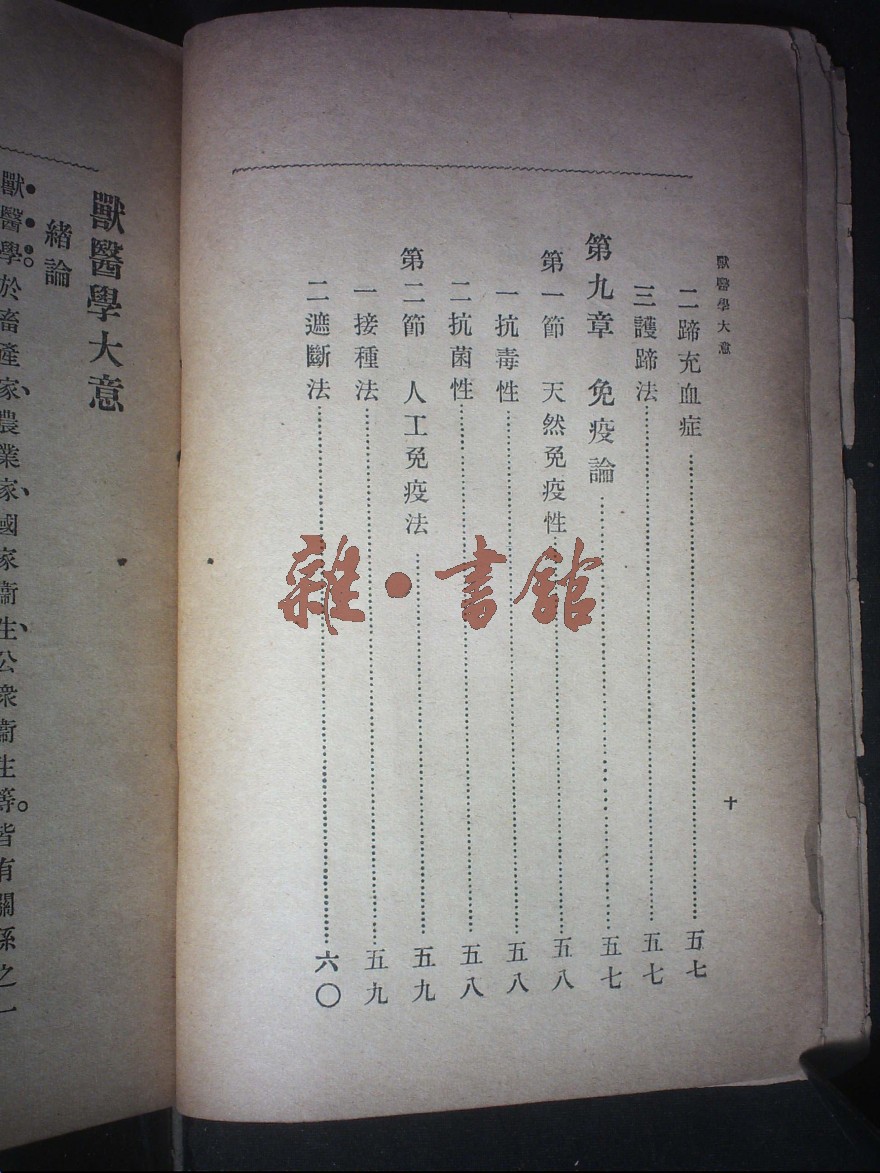 獸醫學大意
二蹄充血症……五七
三護蹄法……五七
第九章 免疫論……五七
第一節 天然免疫性……五八
一抗毒性……五八
二抗菌性……五八
第二節 人工免疫法……五九
一接種法……五九
二遮斷法……六〇
十
雜·書館
獸醫學大意
緒論
獸醫學於畜產家、農業家、國家衞生、公衆衞生等。皆有關係之一